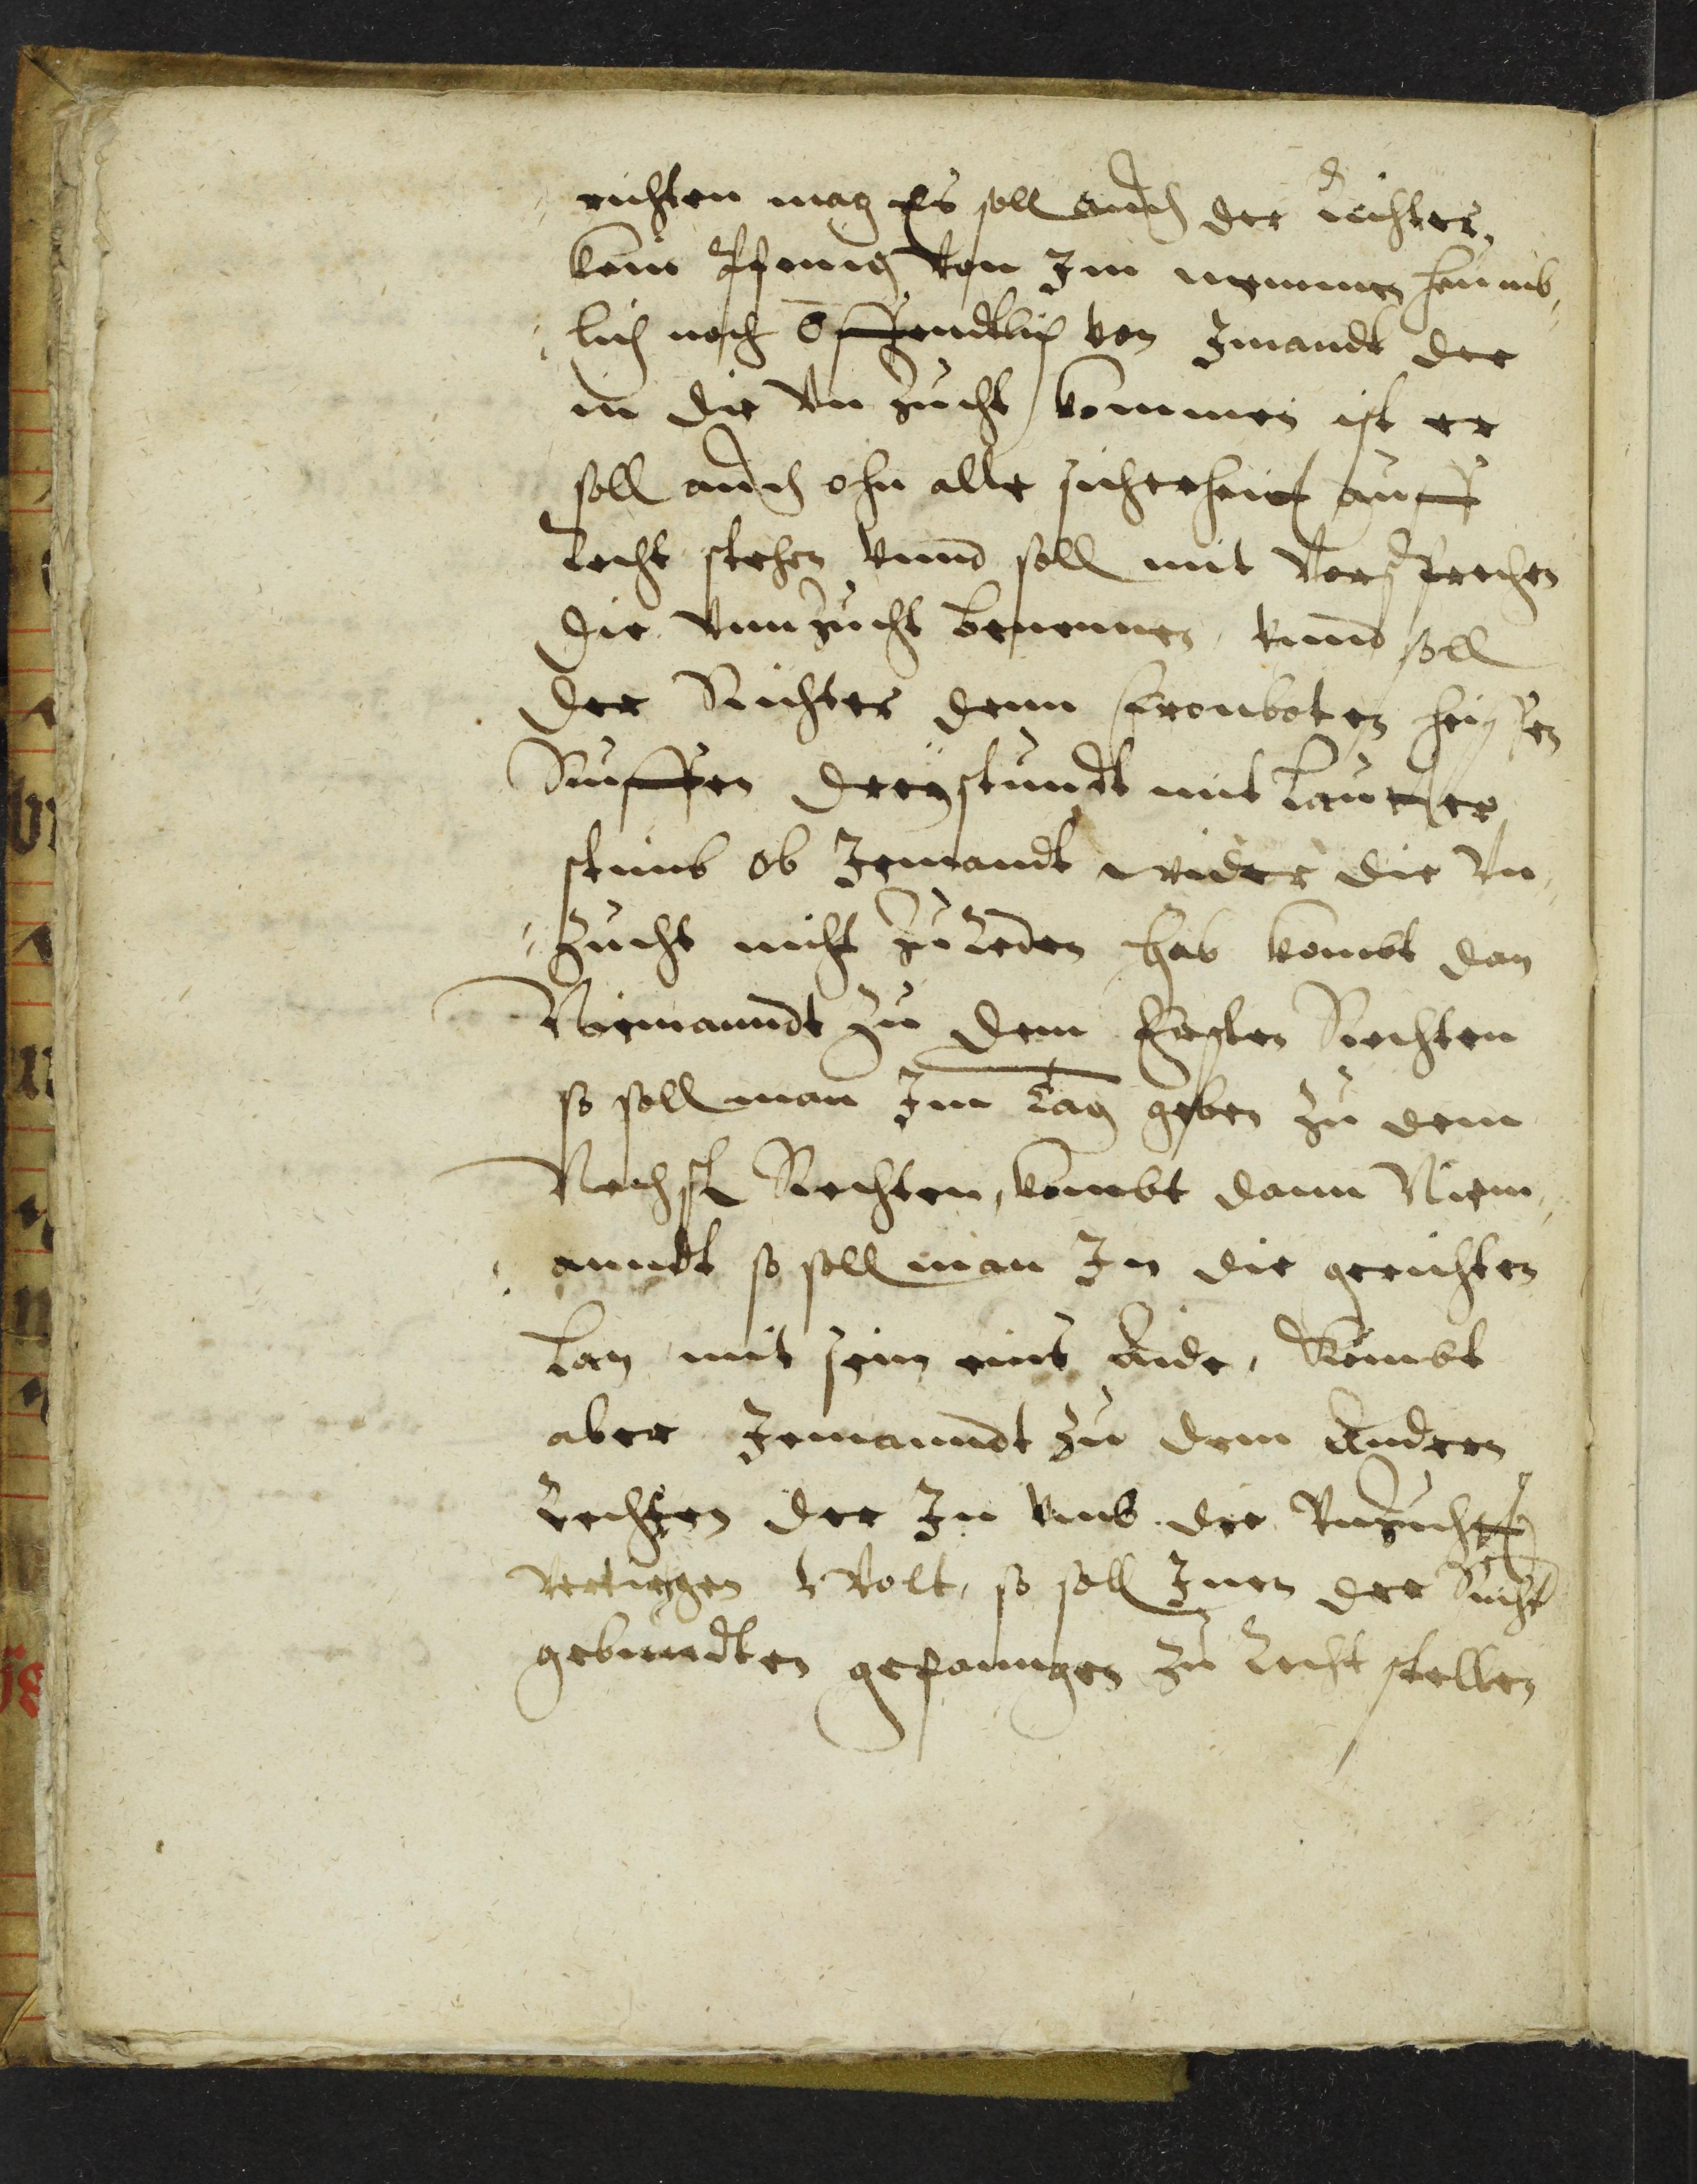 richten mag Es soll auch der Richter
kein Pfenig von Im nemmen heimb,
lich noch Öffendtlich von Imandt der
in die Vnzucht kommen ist er
soll auch ohn alle sicherheit auff
Recht stehen vnnd soll mit Vorsprechen
die Vnnzucht benennen, vnnd soll
der Richter denn fronboten heissen
Ruffen dreystundt mit lautter
stimb ob Jemandt wider die Vn,
zucht nicht zu Reden hab kombt dan
Niemanndt zu dem Ersten Rechten
so soll man Im Tag geben zu dem
Nechsten Rechten, kombt dann Niem,
anndt so soll man In die gerichten
lan mit sein eins Aide, Kombt
aber Jemanndt zu dem Andern
Rechten der In vmb die Vnzucht
Vertigen Wolt, so soll Inen der Richter
gebundten gefanngen zu Recht stellen